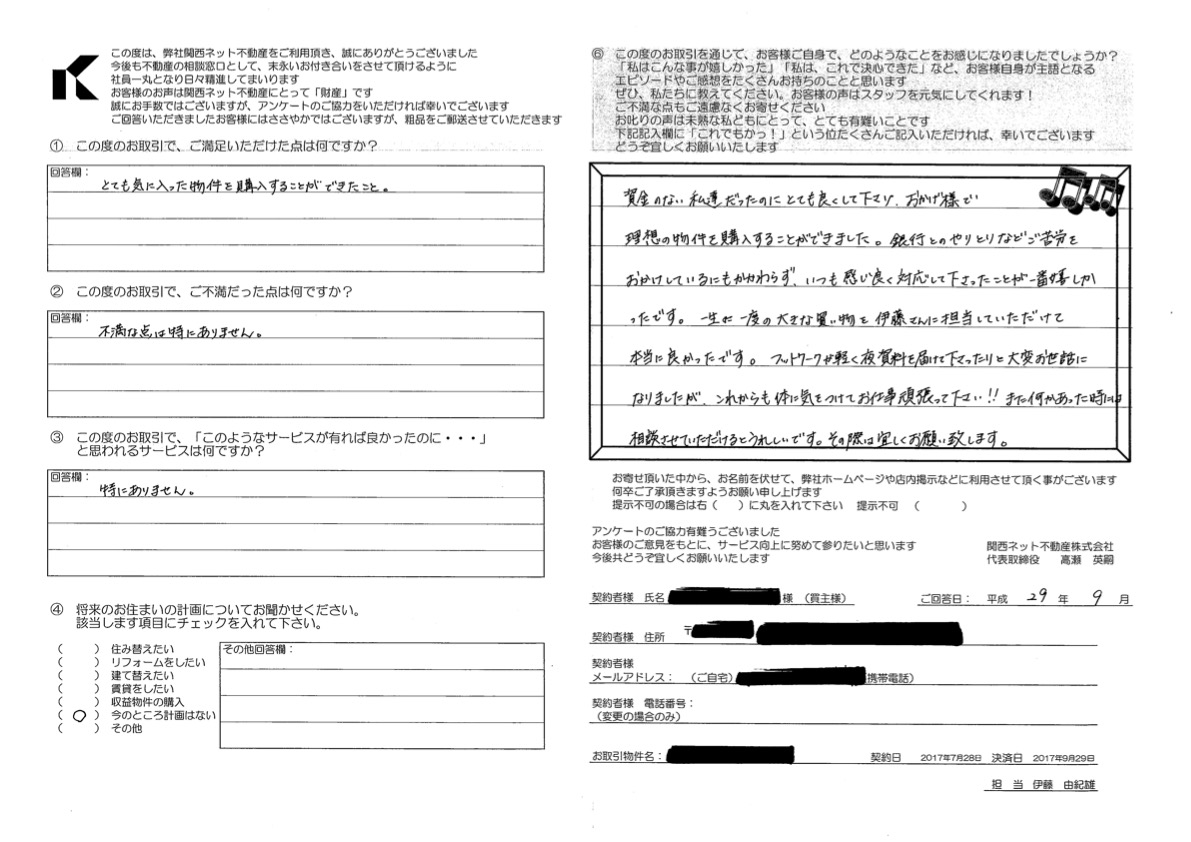 この度は、弊社関西ネット不動産をご利用頂き、誠にありがとうございました
今後も不動産の相談窓口として、末永いお付き合いをさせて頂けるように
社員一丸となり日々精進してまいります
お客様のお声は関西ネット不動産にとって「財産」です
誠にお手数ではございますが、アンケートのご協力をいただければ幸いでございます
ご回答いただきましたお客様にはささやかではございますが、粗品をご郵送させていただきます
① この度のお取引で、ご満足いただけた点は何ですか?
回答欄:
とても気に入った物件を購入することができたこと。
② この度のお取引で、ご不満だった点は何ですか?
回答欄:
不満な点は特にありません。
③ この度のお取引で、「このようなサービスが有れば良かったのに・・・」
と思われるサービスは何ですか?
回答欄:
特にありません。
④ 将来のお住まいの計画についてお聞かせください。
該当します項目にチェックを入れて下さい。
( ) 住み替えたい
( ) リフォームをしたい
( ) 建て替えたい
( ) 賃貸をしたい
( ) 収益物件の購入
( ○ ) 今のところ計画はない
( ) その他
その他回答欄:
⑤ この度のお取引を通じて、お客様ご自身で、どのようなことをお感じになりましたでしょうか?
「私はこんな事が嬉しかった」「私は、これで決心できた」など、お客様自身が主語となる
エピソードやご感想をたくさんお持ちのことと思います
ぜひ、私たちに教えてください。お客様の声はスタッフを元気にしてくれます!
ご不満な点もご遠慮なくお寄せください
お叱りの声は未熟な私どもにとって、とても有難いことです
下記記入欄に「これでもかっ!」という位たくさんご記入いただければ、幸いでございます
どうぞ宜しくお願いいたします
資金のない私達だったのにとても良くして下さり、おかげ様で
理想の物件を購入することができました。銀行とのやりとりなどご苦労を
おかけしているにもかかわらず、いつも感じ良く対応して下さったことが一番嬉しか
ったです。一生に一度の大きな買い物を伊藤さんに担当していただけて
本当に良かったです。フットワークが軽く夜資料を届けて下さったりと大変お世話に
なりましたが、これからも体に気をつけてお仕事頑張って下さい!!また何かあった時には
相談させていただけるとうれしいです。その際は宜しくお願い致します。
お寄せ頂いた中から、お名前を伏せて、弊社ホームページや店内掲示などに利用させて頂く事がございます
何卒ご了承頂きますようお願い申し上げます
提示不可の場合は右( )に丸を入れて下さい 提示不可 ( )
アンケートのご協力有難うございました
お客様のご意見をもとに、サービス向上に努めて参りたいと思います
今後共どうぞ宜しくお願いいたします
関西ネット不動産株式会社
代表取締役 高瀬 英嗣
契約者様 氏名 様 (買主様)
ご回答日: 平成 29 年 9 月
契約者様 住所 〒
契約者様
メールアドレス: (ご自宅) 携帯電話)
契約者様 電話番号:
(変更の場合のみ)
お取引物件名: 契約日 2017年7月28日 決済日 2017年9月29日
担 当 伊藤 由紀雄